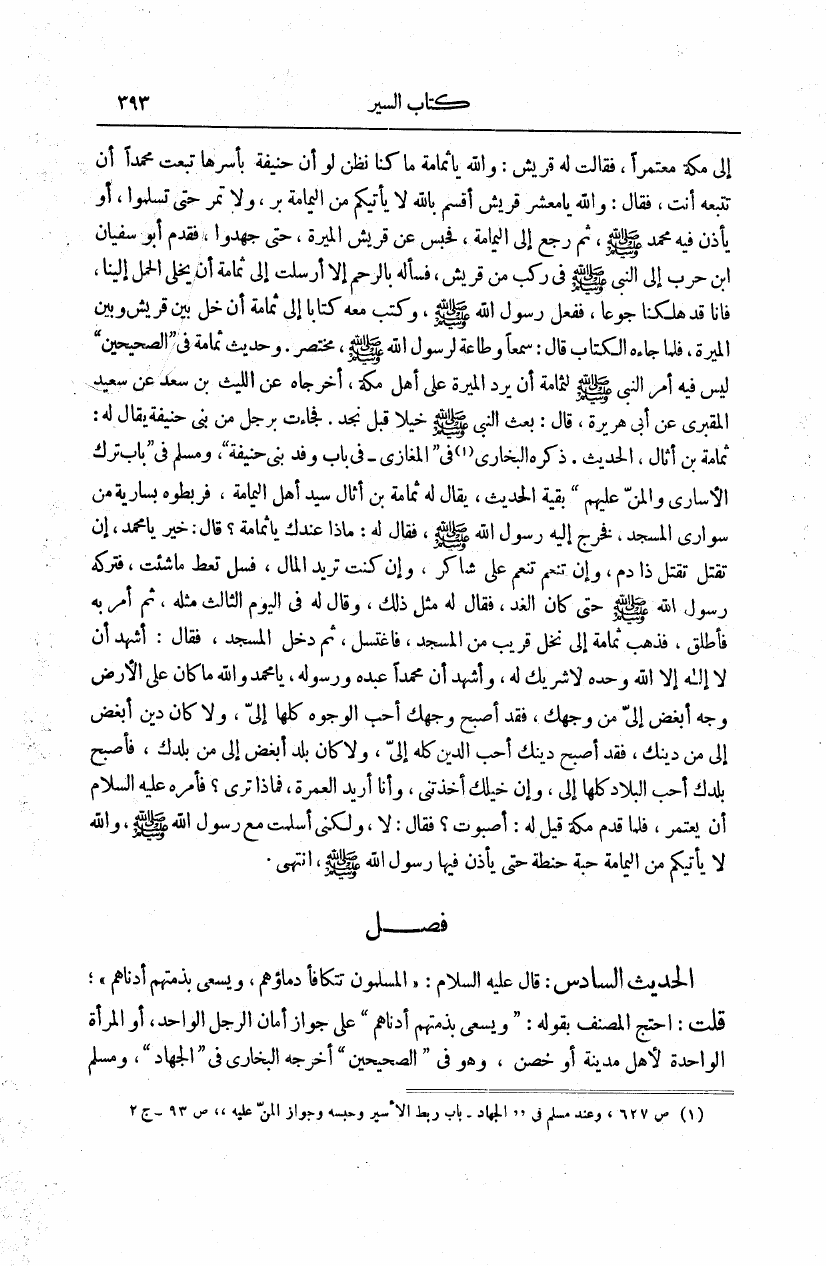 كتاب السير ٣٩٣
إلى مكة معتمراً ، فقالت له قريش : والله ياثمامة ماكنا نظن لو أن حنيفة بأسرها تبعت محمداً أن
تتبعه أنت ، فقال : والله يامعشر قريش أقسم بالله لا يأتيكم من اليمامة بر ، ولا تمر حتى تسلموا ، أو
يأذن فيه محمد ﷺ ، ثم رجع إلى اليمامة ، فحبس عن قريش الميرة ، حتى جهدوا ، فقدم أبو سفيان
ابن حرب إلى النبي ﷺ فى ركب من قريش ، فسأله بالرحم إلا أرسلت إلى ثمامة أن يخلى الحمل إلينا ،
فانا قد هلكنا جوعا ، ففعل رسول الله ﷺ ، وكتب معه كتابا إلى ثمامة أن خل بين قريش وبين
الميرة ، فلما جاءه الكتاب قال : سمعاً وطاعة لرسول الله ﷺ ، مختصر . وحديث ثمامة فى "الصحيحين"
ليس فيه أمر النبي ﷺ لثمامة أن يرد الميرة على أهل مكة ، أخرجاه عن الليث بن سعد عن سعيد
المقبرى عن أبى هريرة ، قال : بعث النبي ﷺ خيلا قبل نجد . فجاءت برجل من بنى حنيفة يقال له :
ثمامة بن أثال ، الحديث . ذكره البخارى (١) فى "المغازى ـ فى باب وفد بنى حنيفة" ، ومسلم فى "باب ترك
الأسارى والمنّ عليهم" بقية الحديث ، يقال له ثمامة بن أثال سيد أهل اليمامة ، فربطوه بسارية من
سوارى المسجد ، فخرج إليه رسول الله ﷺ ، فقال له : ماذا عندك ياثمامة ؟ قال : خير يامحمد ، إن
تقتل تقتل ذا دم ، وإن تنعم تنعم على شاكر ، وإن كنت تريد المال ، فسل تعط ماشئت ، فتركه
رسول الله ﷺ حتى كان الغد ، فقال له مثل ذلك ، وقال له فى اليوم الثالث مثله ، ثم أمر به
فأطلق ، فذهب ثمامة إلى نخل قريب من المسجد ، فاغتسل ، ثم دخل المسجد ، فقال : أشهد أن
لا إله إلا الله وحده لاشريك له ، وأشهد أن محمداً عبده ورسوله ، يامحمد والله ماكان على الأرض
وجه أبغض إلىّ من وجهك ، فقد أصبح وجهك أحب الوجوه كلها إلىّ ، ولا كان دين أبغض
إلى من دينك ، فقد أصبح دينك أحب الدين كله إلىّ ، ولاكان بلد أبغض إلى من بلدك ، فأصبح
بلدك أحب البلاد كلها إلى ، وإن خيلك أخذتنى ، وأنا أريد العمرة ، فماذا ترى ؟ فأمره عليه السلام
أن يعتمر ، فلما قدم مكة قيل له : أصبوت ؟ فقال : لا ، ولكنى أسلمت مع رسول الله ﷺ ، والله
لا يأتيكم من اليمامة حبة حنطة حتى يأذن فيها رسول الله ﷺ ، انتهى .
فصل
الحديث السادس : قال عليه السلام : « المسلمون تتكافأ دماؤهم ، ويسعى بذمتهم أدناهم » ؛
قلت : احتج المصنف بقوله : "ويسعى بذمتهم أدناهم" على جواز أمان الرجل الواحد ، أو المرأة
الواحدة لأهل مدينة أو حصن ، وهو فى "الصحيحين" أخرجه البخارى فى "الجهاد" ، ومسلم
(١) ص ٦٢٧ ، وعند مسلم فى ,, الجهاد ـ باب ربط الأسير وحبسه وجواز المنّ عليه ،، ص ٩٣ ـ ج ٢